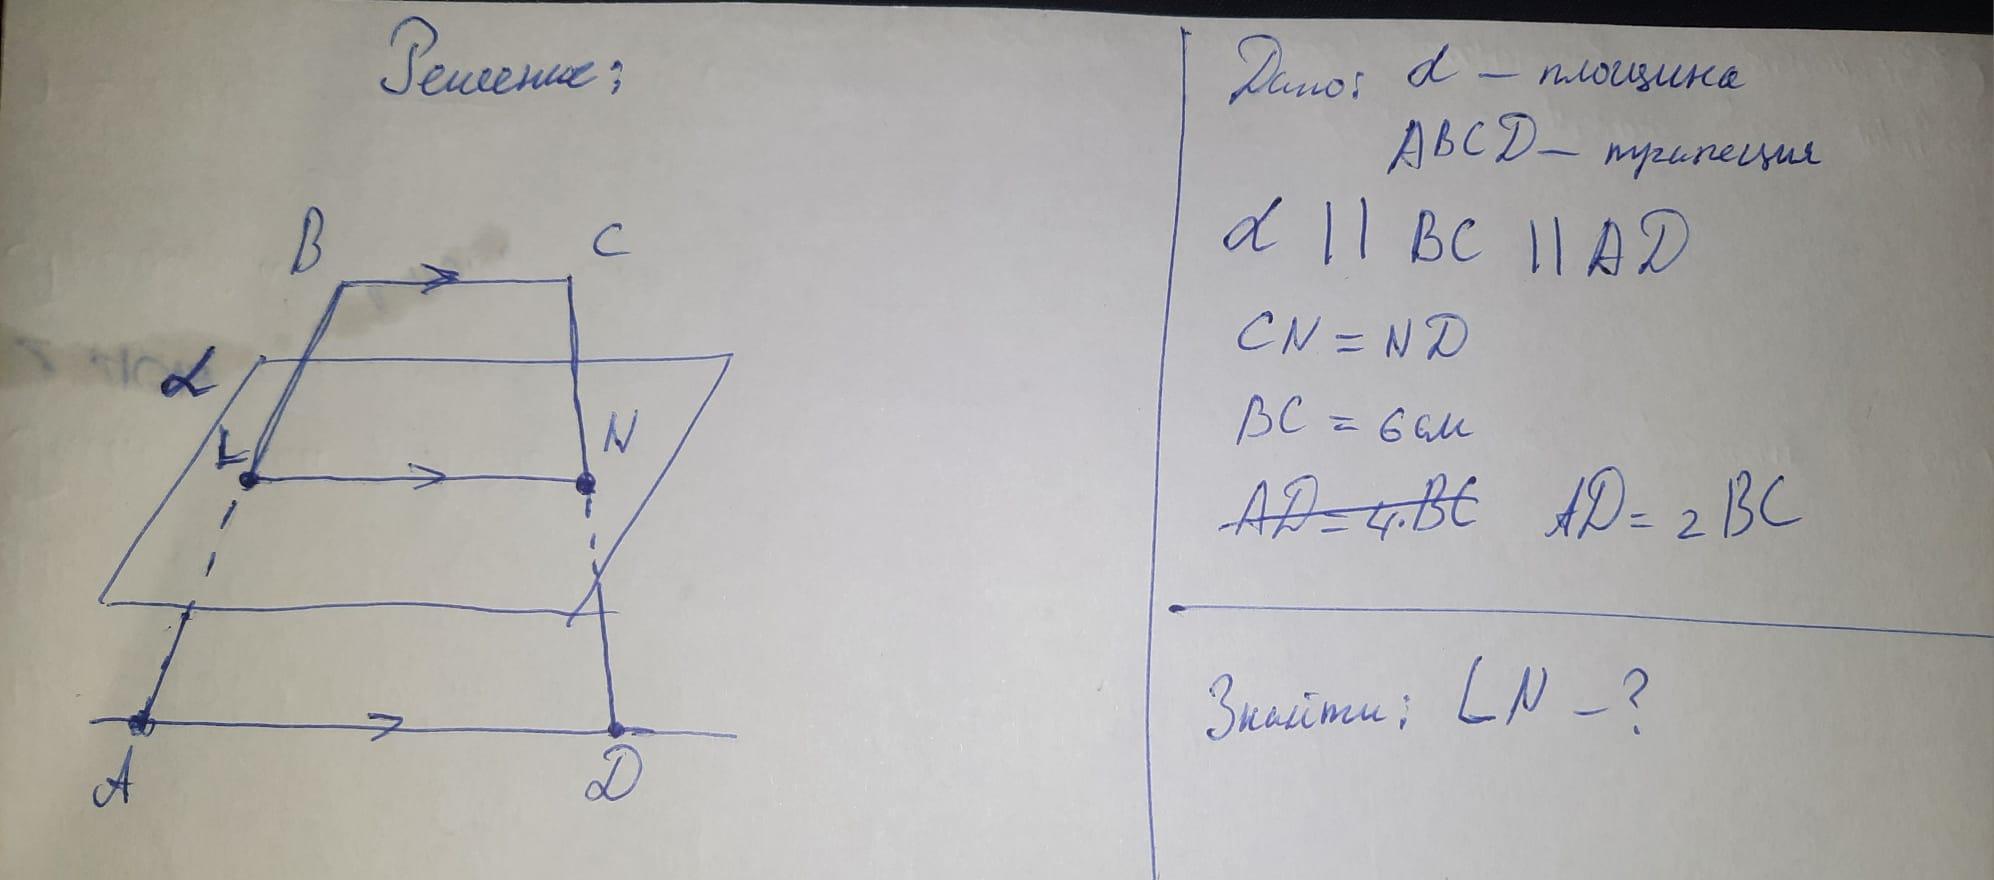 Решение:
B C
α
L N
A D
Дано: α – площина
ABCD – трапеция
α || BC || AD
CN = ND
BC = 6 см
AD = 4·BC AD = 2 BC
Знайти: LN – ?